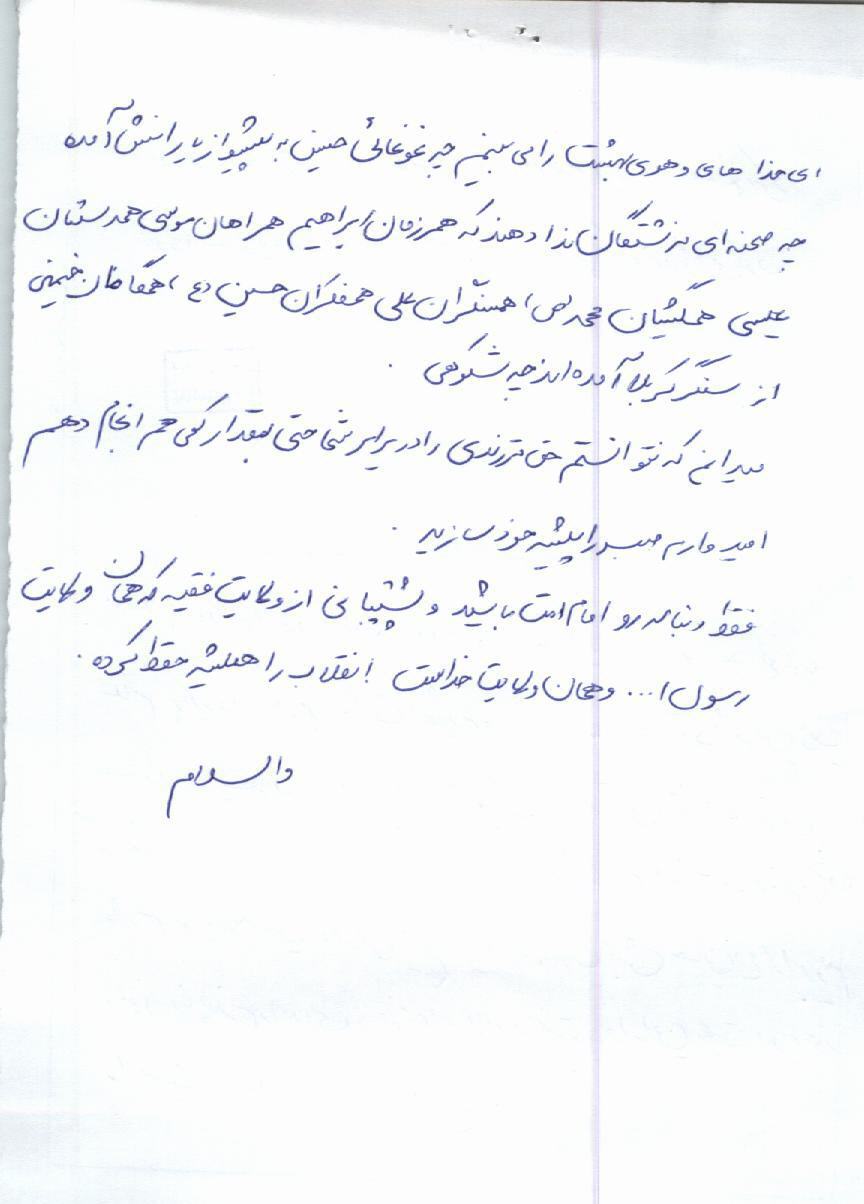 ای خدا های و هوی بهشت را می بینم چه غوغائی حسین به پیشواز یارانش آمده
چه صحنه ای فرشتگان ندا دهند که همرزمان ابراهیم همراهان موسی همدستان
عیسی همکیشان محمد (ص) همسنگران علی همفکران حسین (ع) همگامان خمینی
از سنگر کربلا آمده اند چه شکوهی .
میدانم که نتوانستم حق فرزندی را در برابر شما حتی بمقدار کمی هم انجام دهم
امیدوارم صبر را پیشه خود سازید .
فقط دنباله رو امام امت باشید و پشتیبانی از ولایت فقیه که همان ولایت
رسول ا... و همان ولایت خداست انقلاب را همیشه حفظ کرده .
والسلام